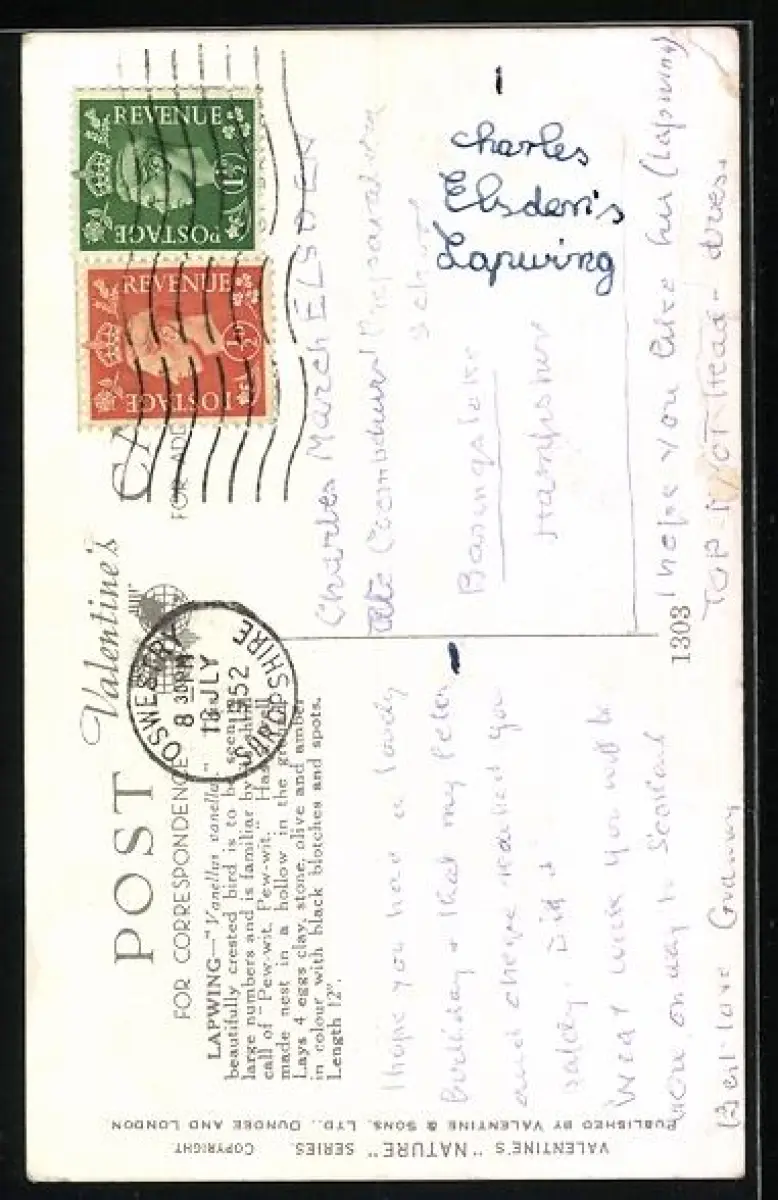 POST
Valentine's
CA
FOR CORRESPONDENCE
FOR ADD
LAPWING—"Vanellus vanellus."
beautifully crested bird is to be seen
large numbers and is familiar by
call of "Pew-wit, Pew-wit." Has
made nest in a hollow in the
Lays 4 eggs clay, stone, olive and amber
in colour with black blotches and spots.
Length 12".
OSWESTRY
8 30 PM
18 JLY
1952
SHROPSHIRE
REVENUE
1½D
POSTAGE
REVENUE
½D
POSTAGE
I hope you have a lovely
Birthday & that my letter
and cheque reached you
safely.
Next week you will be
here, on way to Scotland
Best love Granny
Charles March ELSDEN
Preparatory
School
Basingstoke
Hampshire
I hope you like his (Lapwing)
TOP KNOT Head-dress.
charles
Elsden's
Lapwing
1303
VALENTINE'S "NATURE" SERIES. COPYRIGHT.
PUBLISHED BY VALENTINE & SONS, LTD., DUNDEE AND LONDON